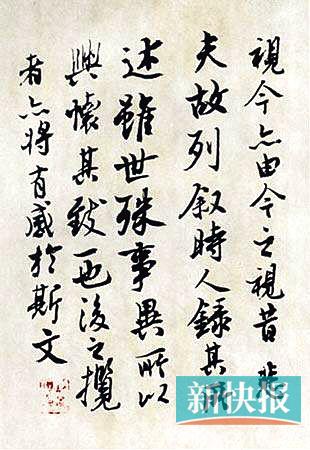 視今亦由今之視昔悲
夫故列叙時人録其所
述雖世殊事異所以
興懷其致一也後之攬
者亦将有感於斯文
新快报